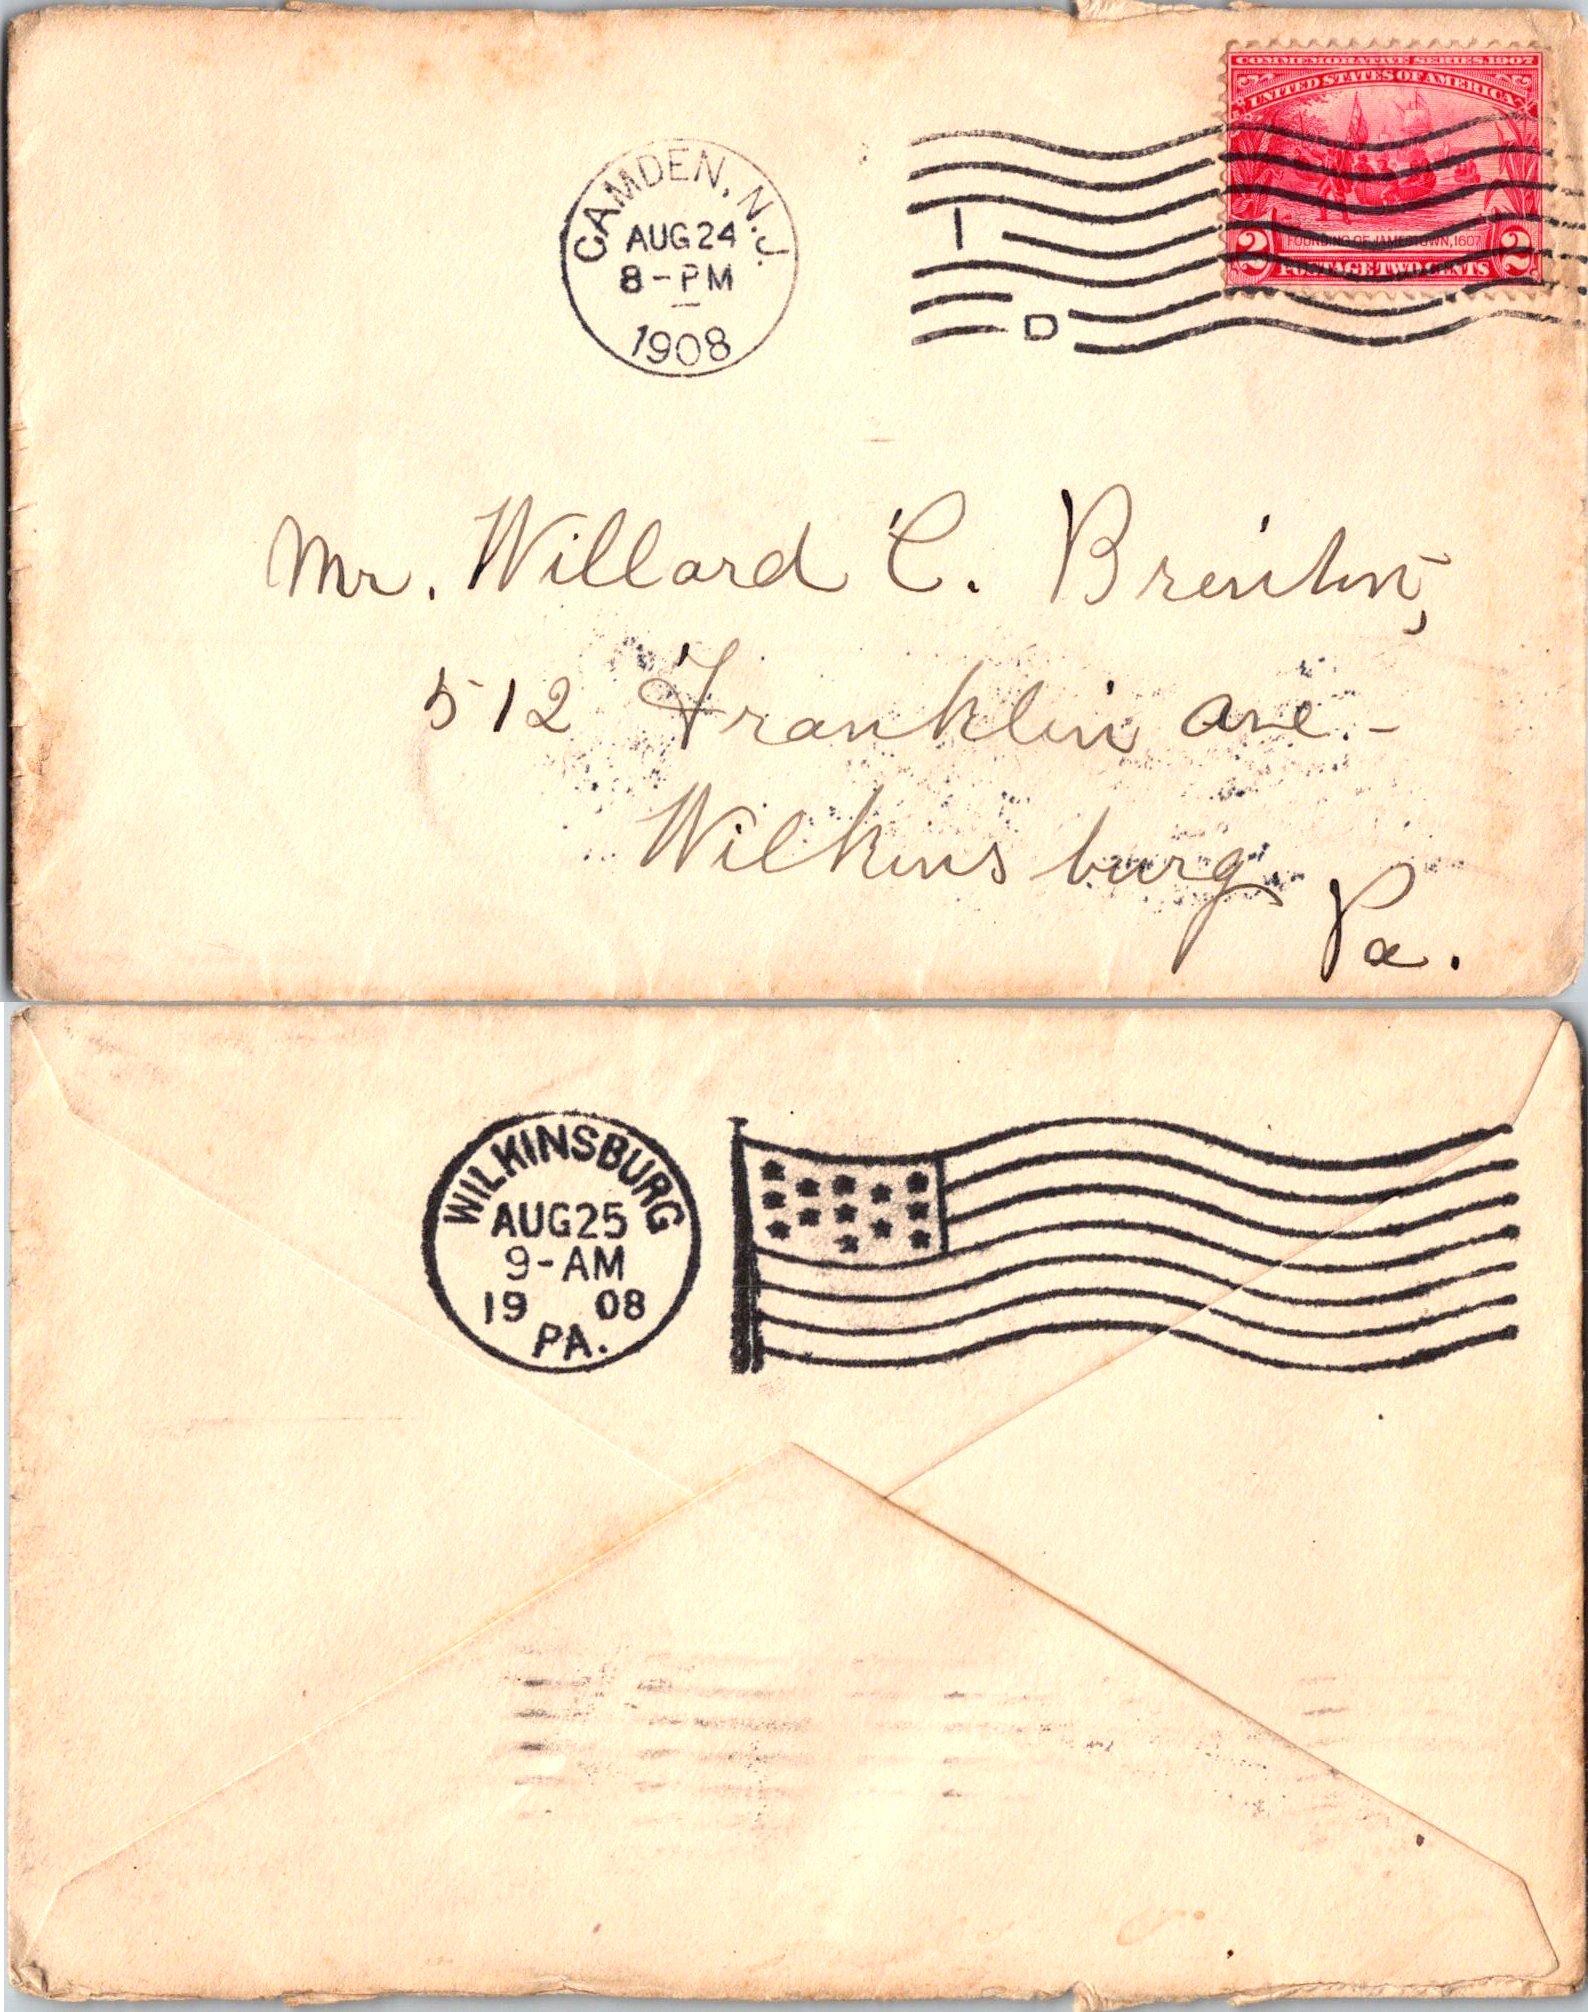 COMMEMORATIVE SERIES, 1907
UNITED STATES OF AMERICA
FOUNDING OF JAMESTOWN, 1607
2 POSTAGE TWO CENTS 2
CAMDEN, N.J.
AUG 24
8-PM
1908
1
D
Mr. Willard C. Brenton,
512 Franklin Ave.-
Wilkinsburg
Pa.
WILKINSBURG
AUG 25
9-AM
19 08
PA.